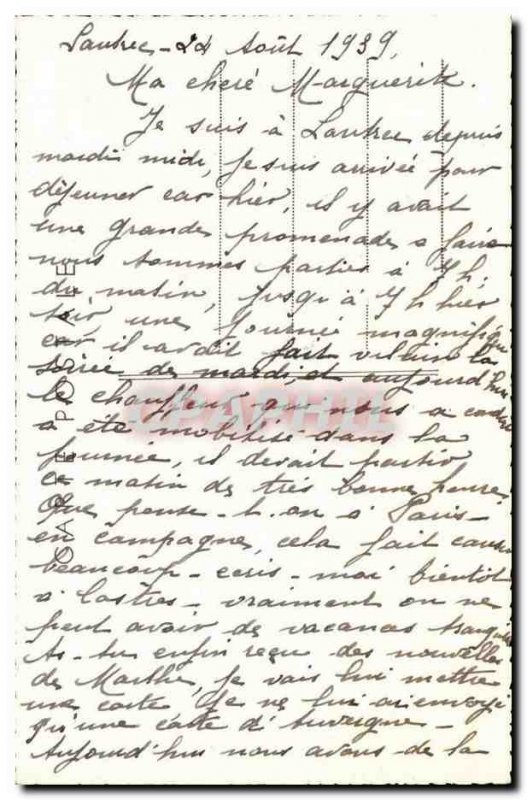 Lautrec - 24 Août 1939,
Ma cheré Marguerite.
Je suis à Lautrec depuis
mardi midi, je suis arrivée pour
déjeuner car hier, il y avait
une grandes promenades a faire
nous sommes parties à 7 h.
du matin, jusqu'à 7 h hier
soir une journé magnifique
car il avait fait vilain la
soirée de mardi, et aujourd'hui
le chauffeur que nous a
a été mobilisé dans la
journée, il devait partir
ce matin de très bonne heure
Que pense-t-on à Paris -
en campagne, cela fait causer
beaucoup - ecris-moi bientôt
à Castres - vraiment on ne
peut avoir de vacances tranquilles
As-tu enfin reçu des nouvelles
de Marthe, Je vais lui mettre
une carte Je ne lui ai envoyé
qu'une carte d'Auvergne -
Aujourd'hui nous avons de la
CARTE POSTALE